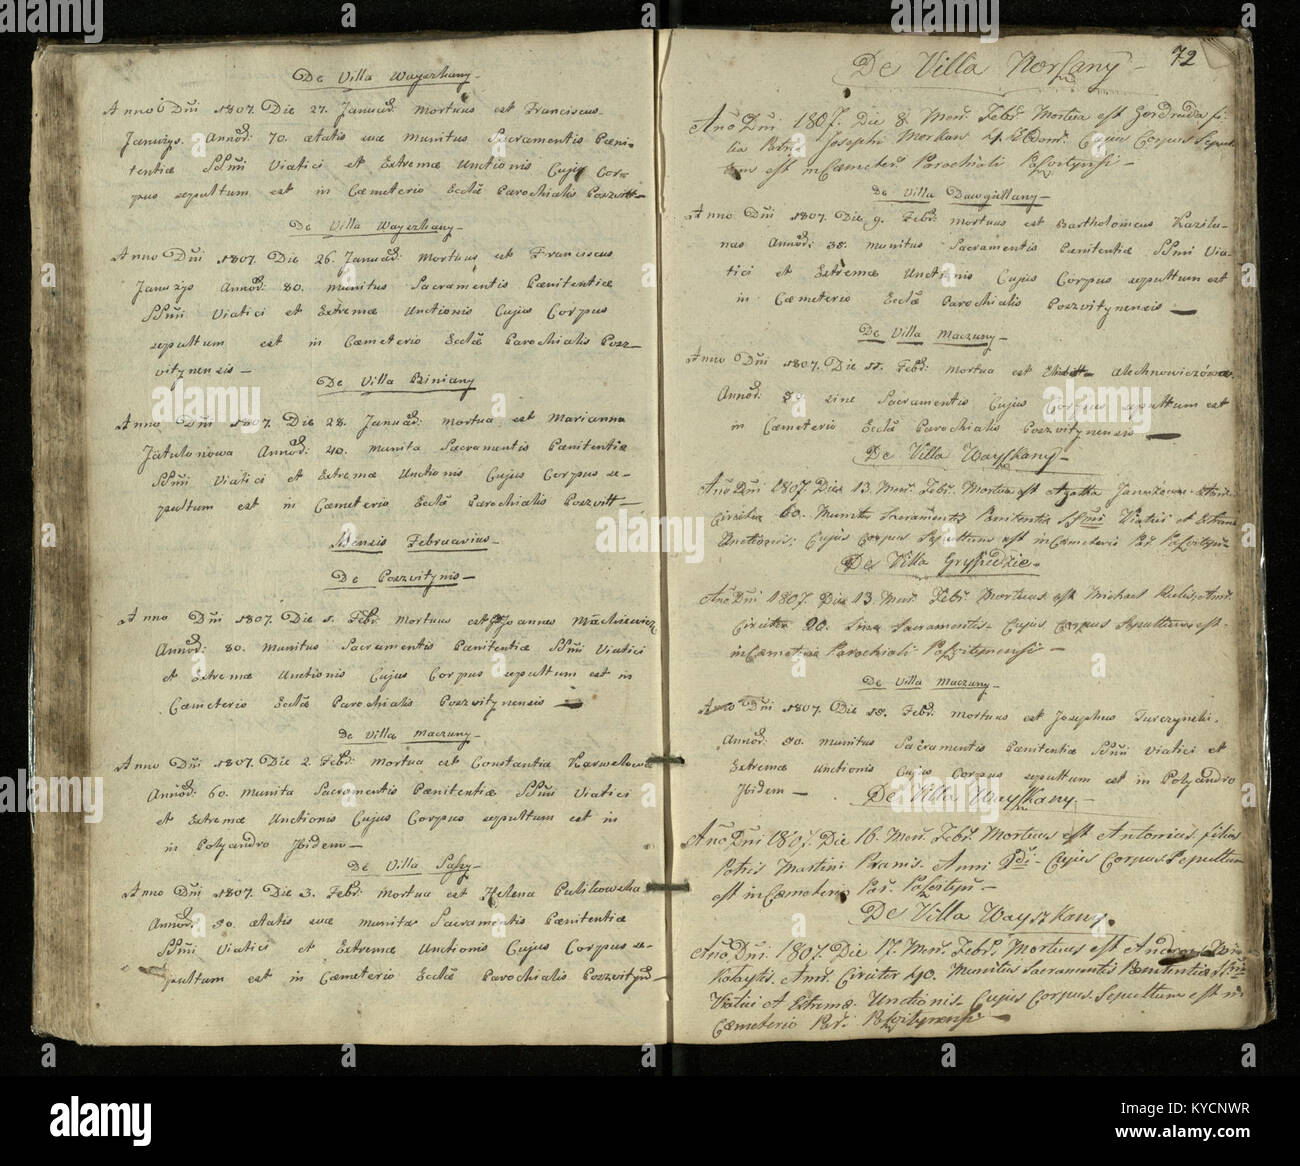 De Villa Wayszkany
Anno Dñi 1807. Die 27. Januar: mortuus est Franciscus
Januzys. Annor: 70. ætatis suæ munitus Sacramentis Pœni-
tentiæ SSmi Viatici et Extremæ Unctionis Cujus Cor-
pus sepultum est in Cæmeterio Ecclæ Parochialis Poszwitt
De Villa Wayszkany
Anno Dñi 1807. Die 26. Januar: Mortuus est Franciscus
Januzys Annor: 80. munitus Sacramentis Pœnitentiæ
SSmi Viatici et Extremæ Unctionis Cujus Corpus
sepultum est in Cæmeterio Ecclæ Parochialis Posz-
witynensis
De Villa Biniany
Anno Dñi 1807. Die 28. Januar: mortua est Marianna
Jatulonowa Annor: 40. munita Sacramentis Pœnitentiæ
SSmi Viatici et Extremæ Unctionis Cujus Corpus se-
pultum est in Cæmeterio Ecclæ Parochialis Poszwitt
Mensis Februarius
De Poszwitynis
Anno Dñi 1807. Die 1. Febr: mortuus est Joannes
Annor: 80. munitus Sacramentis Pœnitentiæ SSmi Viatici
et Extremæ Unctionis Cujus Corpus sepultum est in
Cæmeterio Ecclæ Parochialis Poszwitynensis
De Villa Maczuny
Anno Dñi 1807. Die 2. Febr: mortua est Constantia
Annor: 60. munita Sacramentis Pœnitentiæ SSmi Viatici
et Extremæ Unctionis Cujus Corpus sepultum est in
in Polyandro Ibidem
De Villa
Anno Dñi 1807. Die 3. Febr: mortua est Helena Pulikowska
Annor: 30. ætatis suæ munita Sacramentis Pœnitentiæ
SSmi Viatici et Extremæ Unctionis Cujus Corpus se-
pultum est in Cæmeterio Ecclæ Parochialis Poszwityn
72
De Villa Norszany
Año Dñi 1807. Die 8. Meñ. Febr. Mortua est Gerdruda fi-
lia Josephi Cujus Corpus Sepul-
tum est in Cæmeter Parochiali
De Villa Dawgillany
Anno Dñi 1807. Die 9. Febr: mortuus est Bartholomeus Kazilu-
nas Annor: 38. munitus Sacramentis Pœnitentiæ SSmi Via-
tici et Extremæ Unctionis Cujus Corpus sepultum est
in Cæmeterio Ecclæ Parochialis Poszwitynensis
De Villa Maczuny
Anno Dñi 1807. Die 11. Febr: mortua est Alechnowiczowa
Annor: 80. sine Sacramentis Cujus Corpus sepultum est
in Cæmeterio Ecclæ Parochialis Poszwitynensis
De Villa Wayszkany
Año Dñi 1807. Die 13. Meñ. Febr. Mortua est Agatha
Circiter 60. Munita Sacramentis Pœnitentiæ SSmi Viatici et Extremæ
Unctionis: Cujus Corpus Sepultum est in Cæmeterio
De Villa
Año Dñi 1807. Die 13. Meñ. Febr. Mortuus est Michael
Circiter 20. Sine Sacramentis. Cujus Corpus Sepultum est
in Cæmeterio Parochiali
De Villa Maczuny
Anno Dñi 1807. Die 15. Febr: mortuus est Josephus Turczynski.
Annor: 80. munitus Sacramentis Pœnitentiæ SSmi Viatici et
Extremæ Unctionis Cujus Corpus sepultum est in Polyandro
Ibidem
De Villa Wayszkany.
Año Dñi 1807. Die 16. Meñ. Febr. Mortuus est Antonius filius
Patris Martini Cujus Corpus Sepultum
est in Cæmeterio
De Villa Wayszkany.
Año Dñi. 1807. Die 17. Meñ. Febr. Mortuus est
Circiter 40. Munitus Sacramentis Pœnitentiæ
Viatici et Extremæ Unctionis. Cujus Corpus Sepultum est in
Cæmeterio
alamy
Image ID: KYCNWR
www.alamy.com